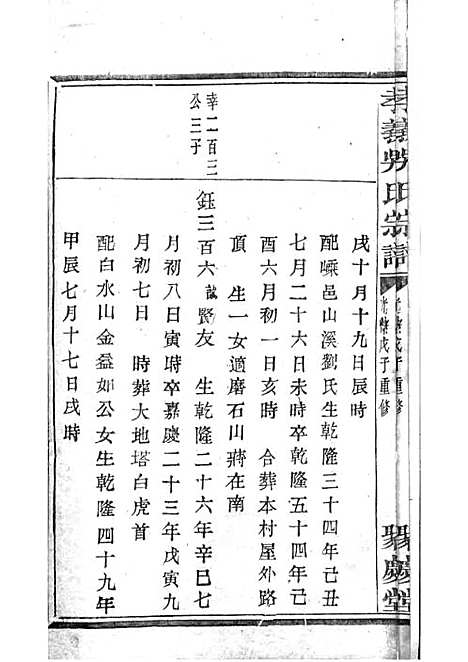 孝義吳氏宗譜
光緒戊子重修
聚慶堂
戌十月十九日辰時
配嵊邑山溪劉氏生乾隆三十四年己丑
七月二十六日未時卒乾隆五十四年己
酉六月初一日亥時　合葬本村屋外路
頂　生一女適磨石山蔣在南
幸二百三
公三子
鈺三百六諱賢友　生乾隆二十六年辛巳七
月初八日寅時卒嘉慶二十三年戊寅九
月初七日　時葬大地塔白虎首
配白水山金益如公女生乾隆四十九年
甲辰七月十七日戌時